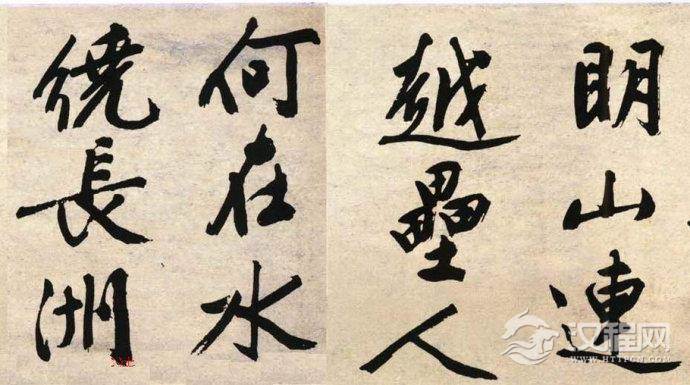 明山連
越壘人
何在水
繞長洲
汉程网
WWW.HTTPCN.COM